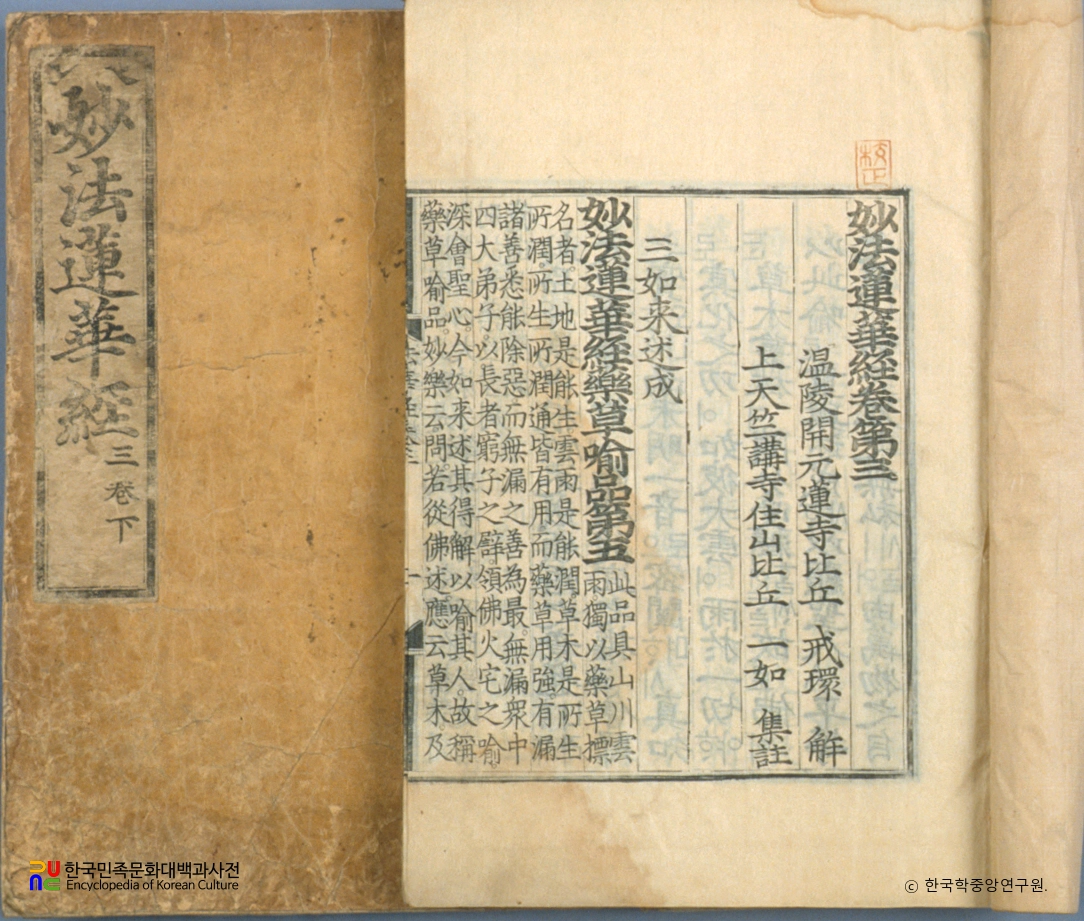 妙法蓮華經
三卷下
校正
妙法蓮華経卷第三
温陵開元蓮寺比丘 戒環 解
上天竺講寺住山比丘 一如 集註
三如来述成
妙法蓮華経藥草喻品第五
此品具山川雲
雨獨以藥草摽
名者土地是能生雲雨是能潤草木是所生
所潤所生所潤通皆有用而藥草用強有漏
諸善悉能除惡而無漏之善為最無漏衆中
四大弟子以長者窮子之譬領佛火宅之喻
深會聖心今如来述其得解以喻其人故稱
藥草喻品妙樂云問若從佛述應云草木及
한국민족문화대백과사전
Encyclopedia of Korean Culture
ⓒ 한국학중앙연구원.